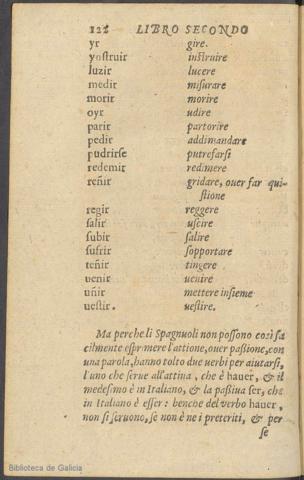 122 LIBRO SECONDO
yr gire.
yoſtruir inſtruire
luzir lucere
medir miſurare
morir morire
oyr udire
parir partorire
pedir addimandare
pudrirſe putrefarſi
redemir redimere
reñir gridare, ouer far qui-
ſtione
regir reggere
ſalir uſcire
ſubir ſalire
ſufrir ſopportare
teñir tingere
uenir uenire
uñir mettere inſieme
ueſtir. ueſtire.
Ma perche li Spagnuoli non poſſono coſi fa
cilmente eſprimere l'attione, ouer paſſione, con
una parola, hanno tolto due verbi per aiutarſi,
l'uno che ſerue all'attiua, che è hauer, & il
medeſimo è in Italiano, & la paßiua ſer, che
in Italiano è eſſer: benche del verbo hauer,
non ſi ſeruono, ſe non è ne i preteriti, & per
ſe
Biblioteca de Galicia